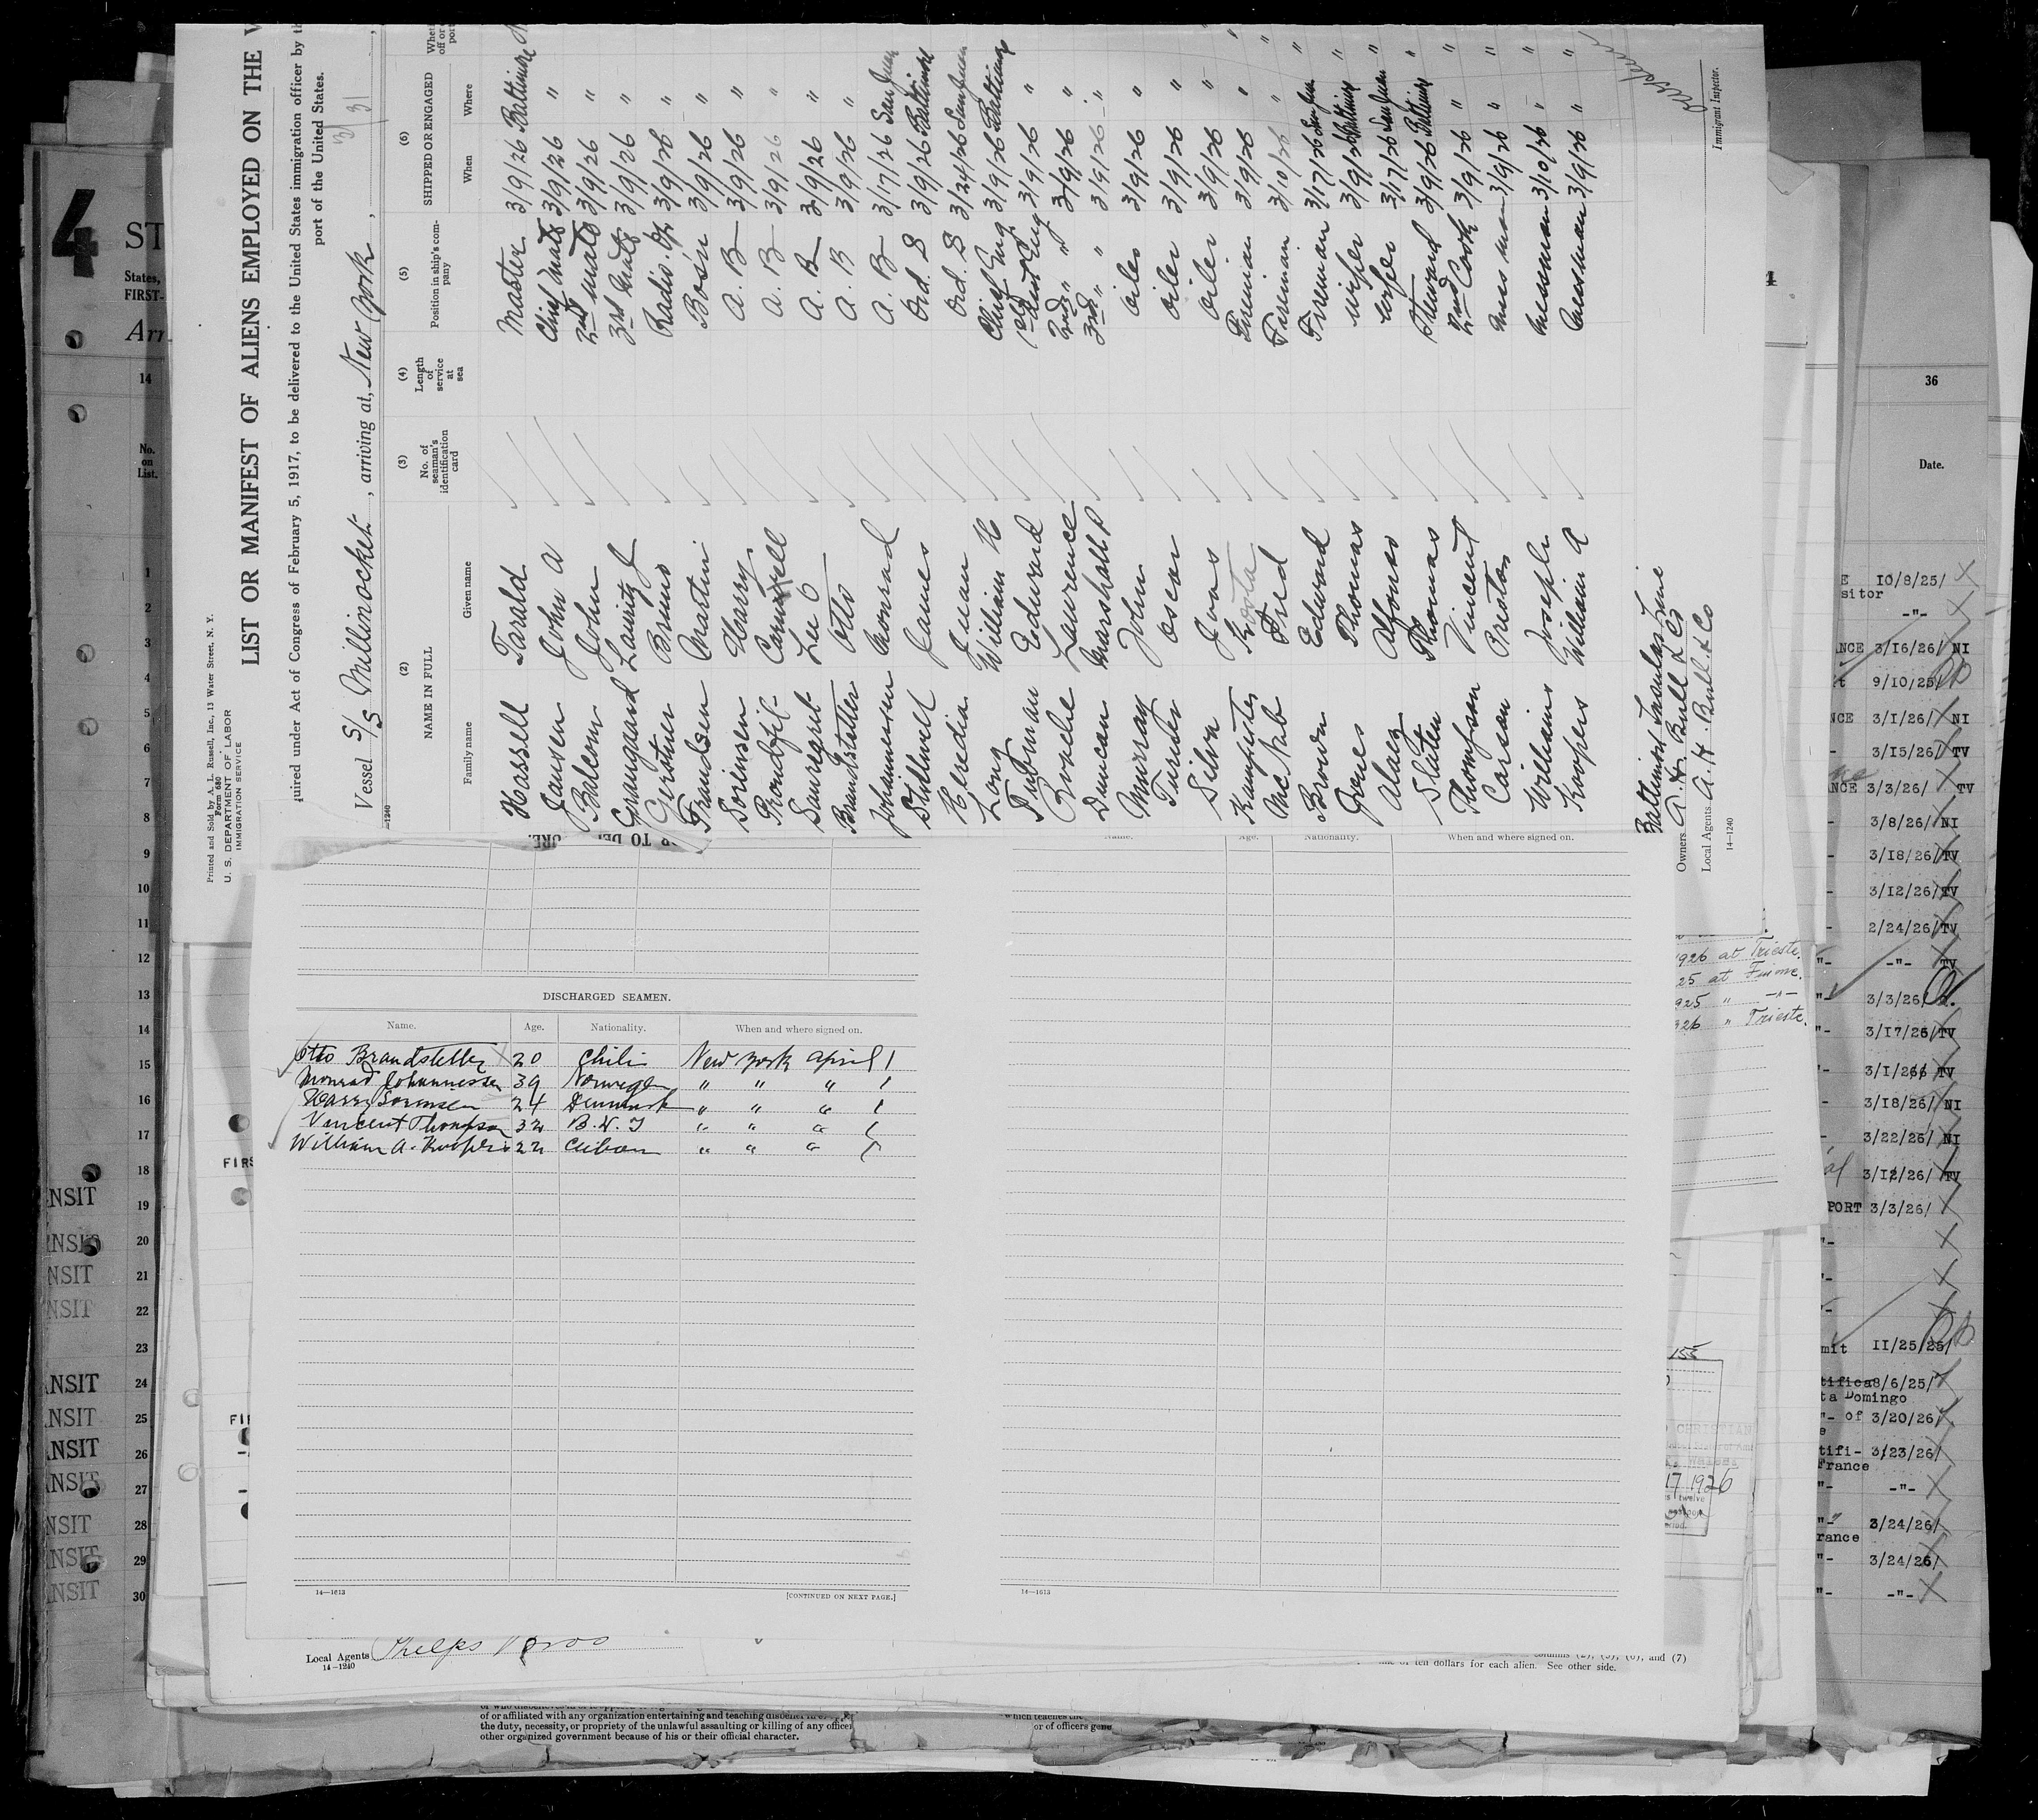 Printed and Sold by A. L. Russell, Inc., 13 Water Street, N. Y.
Form 680
U. S. DEPARTMENT OF LABOR
IMMIGRATION SERVICE
LIST OR MANIFEST OF ALIENS EMPLOYED ON THE V
quired under Act of Congress of February 5, 1917, to be delivered to the United States immigration officer by th
port of the United States.
Vessel S/S Millinocket, arriving at, New York, 3/31
14—1240
(2) NAME IN FULL
Family name Given name
(3) No. of seaman's identification card
(4) Length of service at sea
(5) Position in ship's company
(6) SHIPPED OR ENGAGED
When Where
Hassell Tarald Master 3/9/26 Baltimore
Jansen John A Chief Mate 3/9/26 "
Balcom John 2nd Mate 3/9/26 "
Graugaard Lauritz J 3rd Mate 3/9/26 "
Gertner Bruno Radio Op 3/9/26 "
Frandsen Martin Bosn 3/9/26 "
Sorensen Harry A. B 3/9/26 "
A. B 3/9/26 "
Leo O A. B 3/9/26 "
Brandstetter Otto A. B 3/9/26 "
Johannessen Monrad A. B 3/17/26 San Juan
Stillwell James Ord. S 3/9/26 Baltimore
Heredia Juan Ord. S 3/24/26 San Juan
Long William H Chief Eng 3/9/26 Baltimore
Tubman Edward 1st Asst Eng 3/9/26 "
Roache Lawrence 2nd " " 3/9/26 "
Duncan Marshall P 3rd " " 3/9/26 "
Murray John Oiler 3/9/26 "
Oscar Oiler 3/9/26 "
Silva Joas Oiler 3/9/26 "
Fireman 3/9/26 "
Mc Nab Fred Fireman 3/10/26 "
Brown Edward Fireman 3/17/26 San Juan
Jones Thomas Wiper 3/9/26 Baltimore
Alfonso Wiper 3/17/26 San Juan
Slaten Thomas Steward 3/9/26 Baltimore
Thompson Vincent 2nd Cook 3/9/26 "
Carson Preston Mess man 3/9/26 "
Williams Joseph Messman 3/10/26 "
Koopers William A Messman 3/9/26 "
Baltimore Insular Line
Owners A. H. Bull & Co
Local Agents A. H. Bull & Co
14—1240
Immigrant Inspector.
Name. Age. Nationality. When and where signed on.
DISCHARGED SEAMEN.
Name. Age. Nationality. When and where signed on.
Otto Brandstetter 20 Chili New York April 1
Monrad Johannessen 39 Norwegen " " " 1
Harry Sorensen 24 Denmark " " " 1
Vincent Thompson 32 B. W. I " " " 1
William A. Koopers 22 Cuban " " " 1
14—1613
[CONTINUED ON NEXT PAGE.]
14—1613
Local Agents Phelps Bros
14—1240
and (7)
ten dollars for each alien. See other side.
of or affiliated with any organization entertaining and teaching disbelief in
the duty, necessity, or propriety of the unlawful assaulting or killing of any officer
other organized government because of his or their official character.
which teaches the
or of officers gene
4
ST
States,
FIRST-
Arr
14
No. on List.
1
2
3
4
5
6
7
8
9
10
11
12
13
14
15
16
17
18
19
20
21
22
23
24
25
26
27
28
29
30
NSIT
NSIT
NSIT
NSIT
ANSIT
ANSIT
ANSIT
ANSIT
NSIT
ANSIT
ANSIT
36
Date.
10/8/25/
sitor
-"-
ANCE 3/16/26/ NI
9/10/25/
NCE 3/1/26/ NI
3/15/26/ TV
ANCE 3/3/26/ TV
3/8/26/ NI
3/18/26/ TV
3/12/26/ TV
2/24/26/ TV
-"- TV
3/3/26/
3/17/26/ TV
3/1/26/ TV
3/18/26/ NI
3/22/26/ NI
3/12/26/ TV
PORT 3/3/26/
mit 11/25/25/
tifica 8/6/25/
ta Domingo
"- of 3/20/26/
tifi- 3/23/26/
France
"- -"-
"- 3/24/26/
rance
"- 3/24/26/
"- -"-
1926 at Trieste.
25 at Fiume.
925 " -"-
926 " Trieste.
155
CHRISTIAN
17 1926
twelve